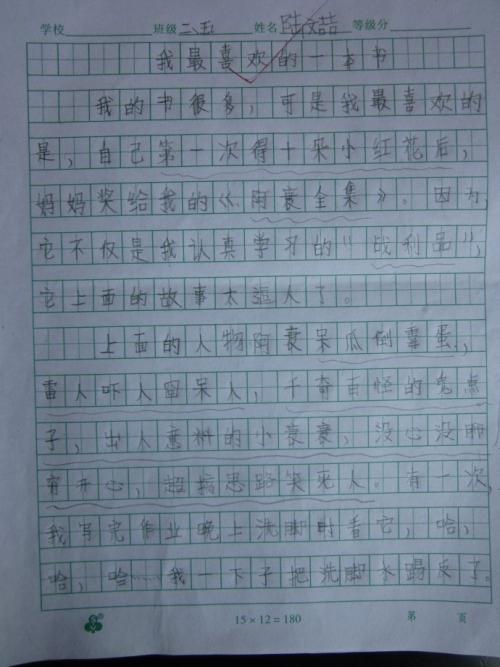 学校 班级 二、五 姓名 陆文喆 等级分
我最喜欢的一本书
我的书很多，可是我最喜欢的
是，自己第一次得十朵小红花后，
妈妈奖给我的《阿衰全集》。因为，
它不仅是我认真学习的“战利品”，
它上面的故事太逗人了。
上面的人物阿衰呆瓜倒霉蛋，
雷人吓人窘呆人，千奇百怪的鬼点
子，出人意料的小衰衰，没心没肺
穷开心，超搞思路笑死人。有一次，
我写完作业晚上洗脚时看它，哈，
哈，哈……我一下子把洗脚水踢皮了。
15×12=180 第 页